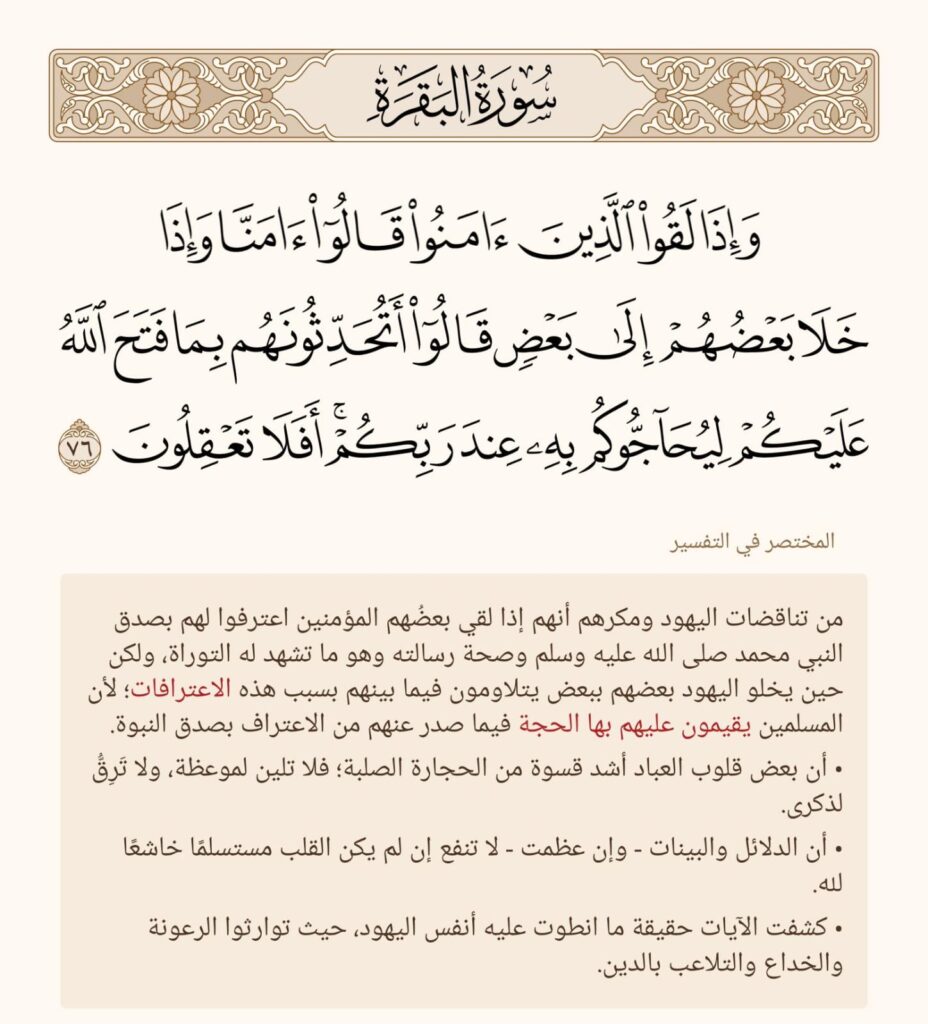 سُورَةُ البَقَرَةِ
وَإِذَا لَقُوا۟ ٱلَّذِينَ ءَامَنُوا۟ قَالُوٓا۟ ءَامَنَّا وَإِذَا
خَلَا بَعْضُهُمْ إِلَىٰ بَعْضٍ قَالُوٓا۟ أَتُحَدِّثُونَهُم بِمَا فَتَحَ ٱللَّهُ
عَلَيْكُمْ لِيُحَآجُّوكُم بِهِۦ عِندَ رَبِّكُمْ ۚ أَفَلَا تَعْقِلُونَ ٧٦
المختصر في التفسير
من تناقضات اليهود ومكرهم أنهم إذا لقي بعضُهم المؤمنين اعترفوا لهم بصدق
النبي محمد صلى الله عليه وسلم وصحة رسالته وهو ما تشهد له التوراة، ولكن
حين يخلو اليهود بعضهم ببعض يتلاومون فيما بينهم بسبب هذه الاعترافات؛ لأن
المسلمين يقيمون عليهم بها الحجة فيما صدر عنهم من الاعتراف بصدق النبوة.
• أن بعض قلوب العباد أشد قسوة من الحجارة الصلبة؛ فلا تلين لموعظة، ولا تَرِقُّ
لذكرى.
• أن الدلائل والبينات - وإن عظمت - لا تنفع إن لم يكن القلب مستسلمًا خاشعًا
لله.
• كشفت الآيات حقيقة ما انطوت عليه أنفس اليهود، حيث توارثوا الرعونة
والخداع والتلاعب بالدين.